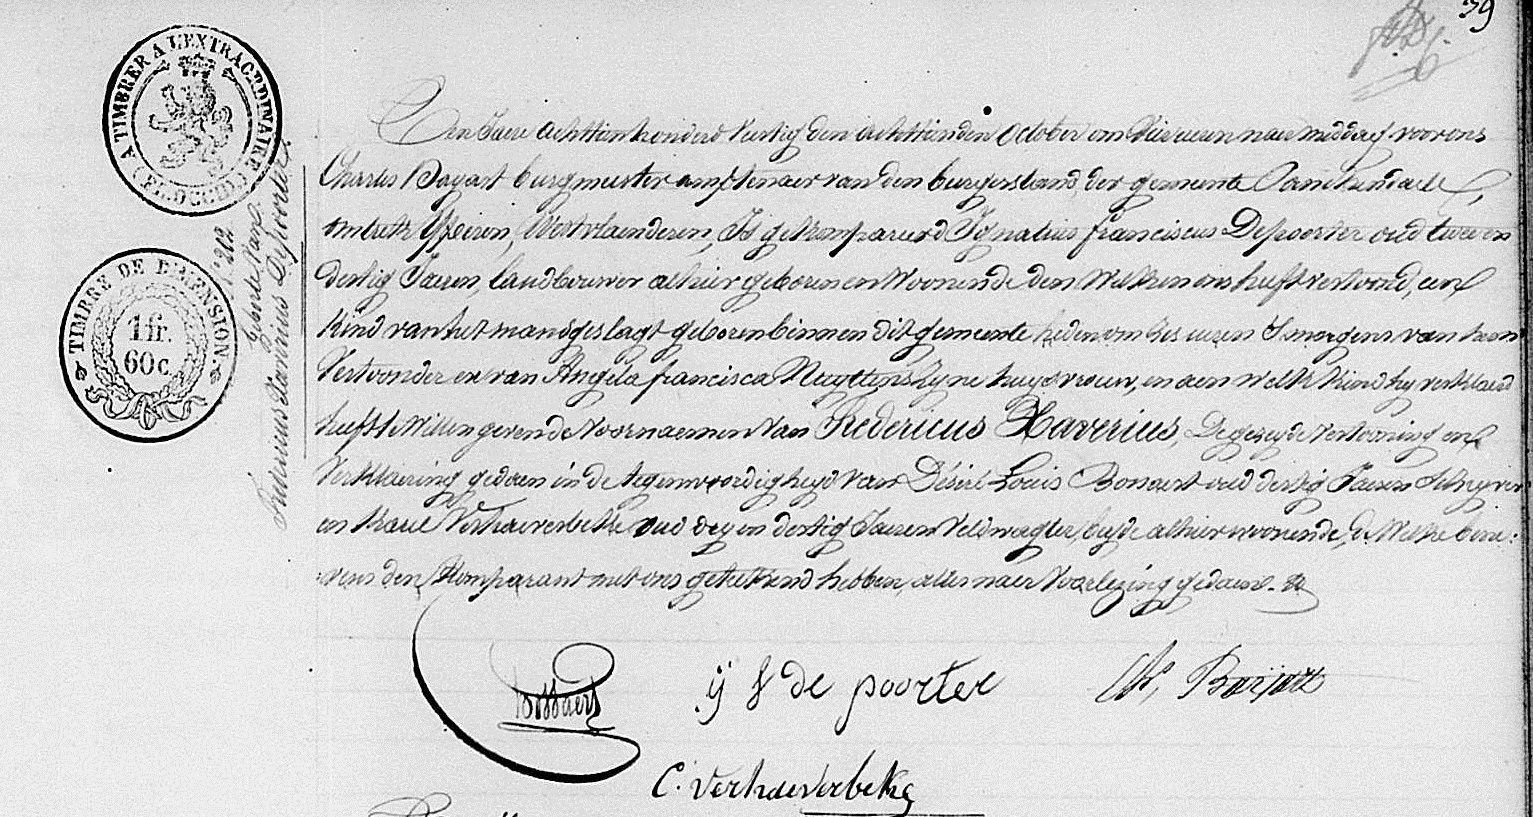 39
A TIMBRER A L'EXTRAORDINAIRE
TIMBRE DE DIMENSION
1 fr.
60 c.
N° 202
Geborte van
Fredericus Xaverius Depoorter
Den Jaere achttien honderd veertig den achttienden October om vier uren naer middag voor ons
Charles Bayart burgmeester amptenaer van den burgerstand der gemeente
omtrek Ypeiren, Westvlaenderen, Is gekompareerd Ignatius franciscus Depoorter oud twee en
dertig Jaeren, landbouwer alhier geboren en Woonende den Welken ons heeft vertoond, een
kind van het mansgeslagt geboren binnen dit gemeente heden om zes uren S'morgens van hem
Vertoonder en van Angela francisca Nuyttens zyne huysvrouw, en aen Welk kind hy verklaerd
heeft te Willen geven de Voornaemen Van Fredericus Xaverius, De gezeyde Vertooning en
Verklaering gedaen in de tegenwoordigheyd van Désiré Louis Bonaert oud dertig Jaeren Schryver
en Karel Verhaeverbeke oud dry en dertig Jaeren Veldwagter, beyde alhier woonende, de Welke bene:
vens den Komparant met ons geteekend hebben, alles naer Voorlezing gedaen.
Bonaert
ij f de poorter
Ch. Bayart
C. Verhaeverbeke